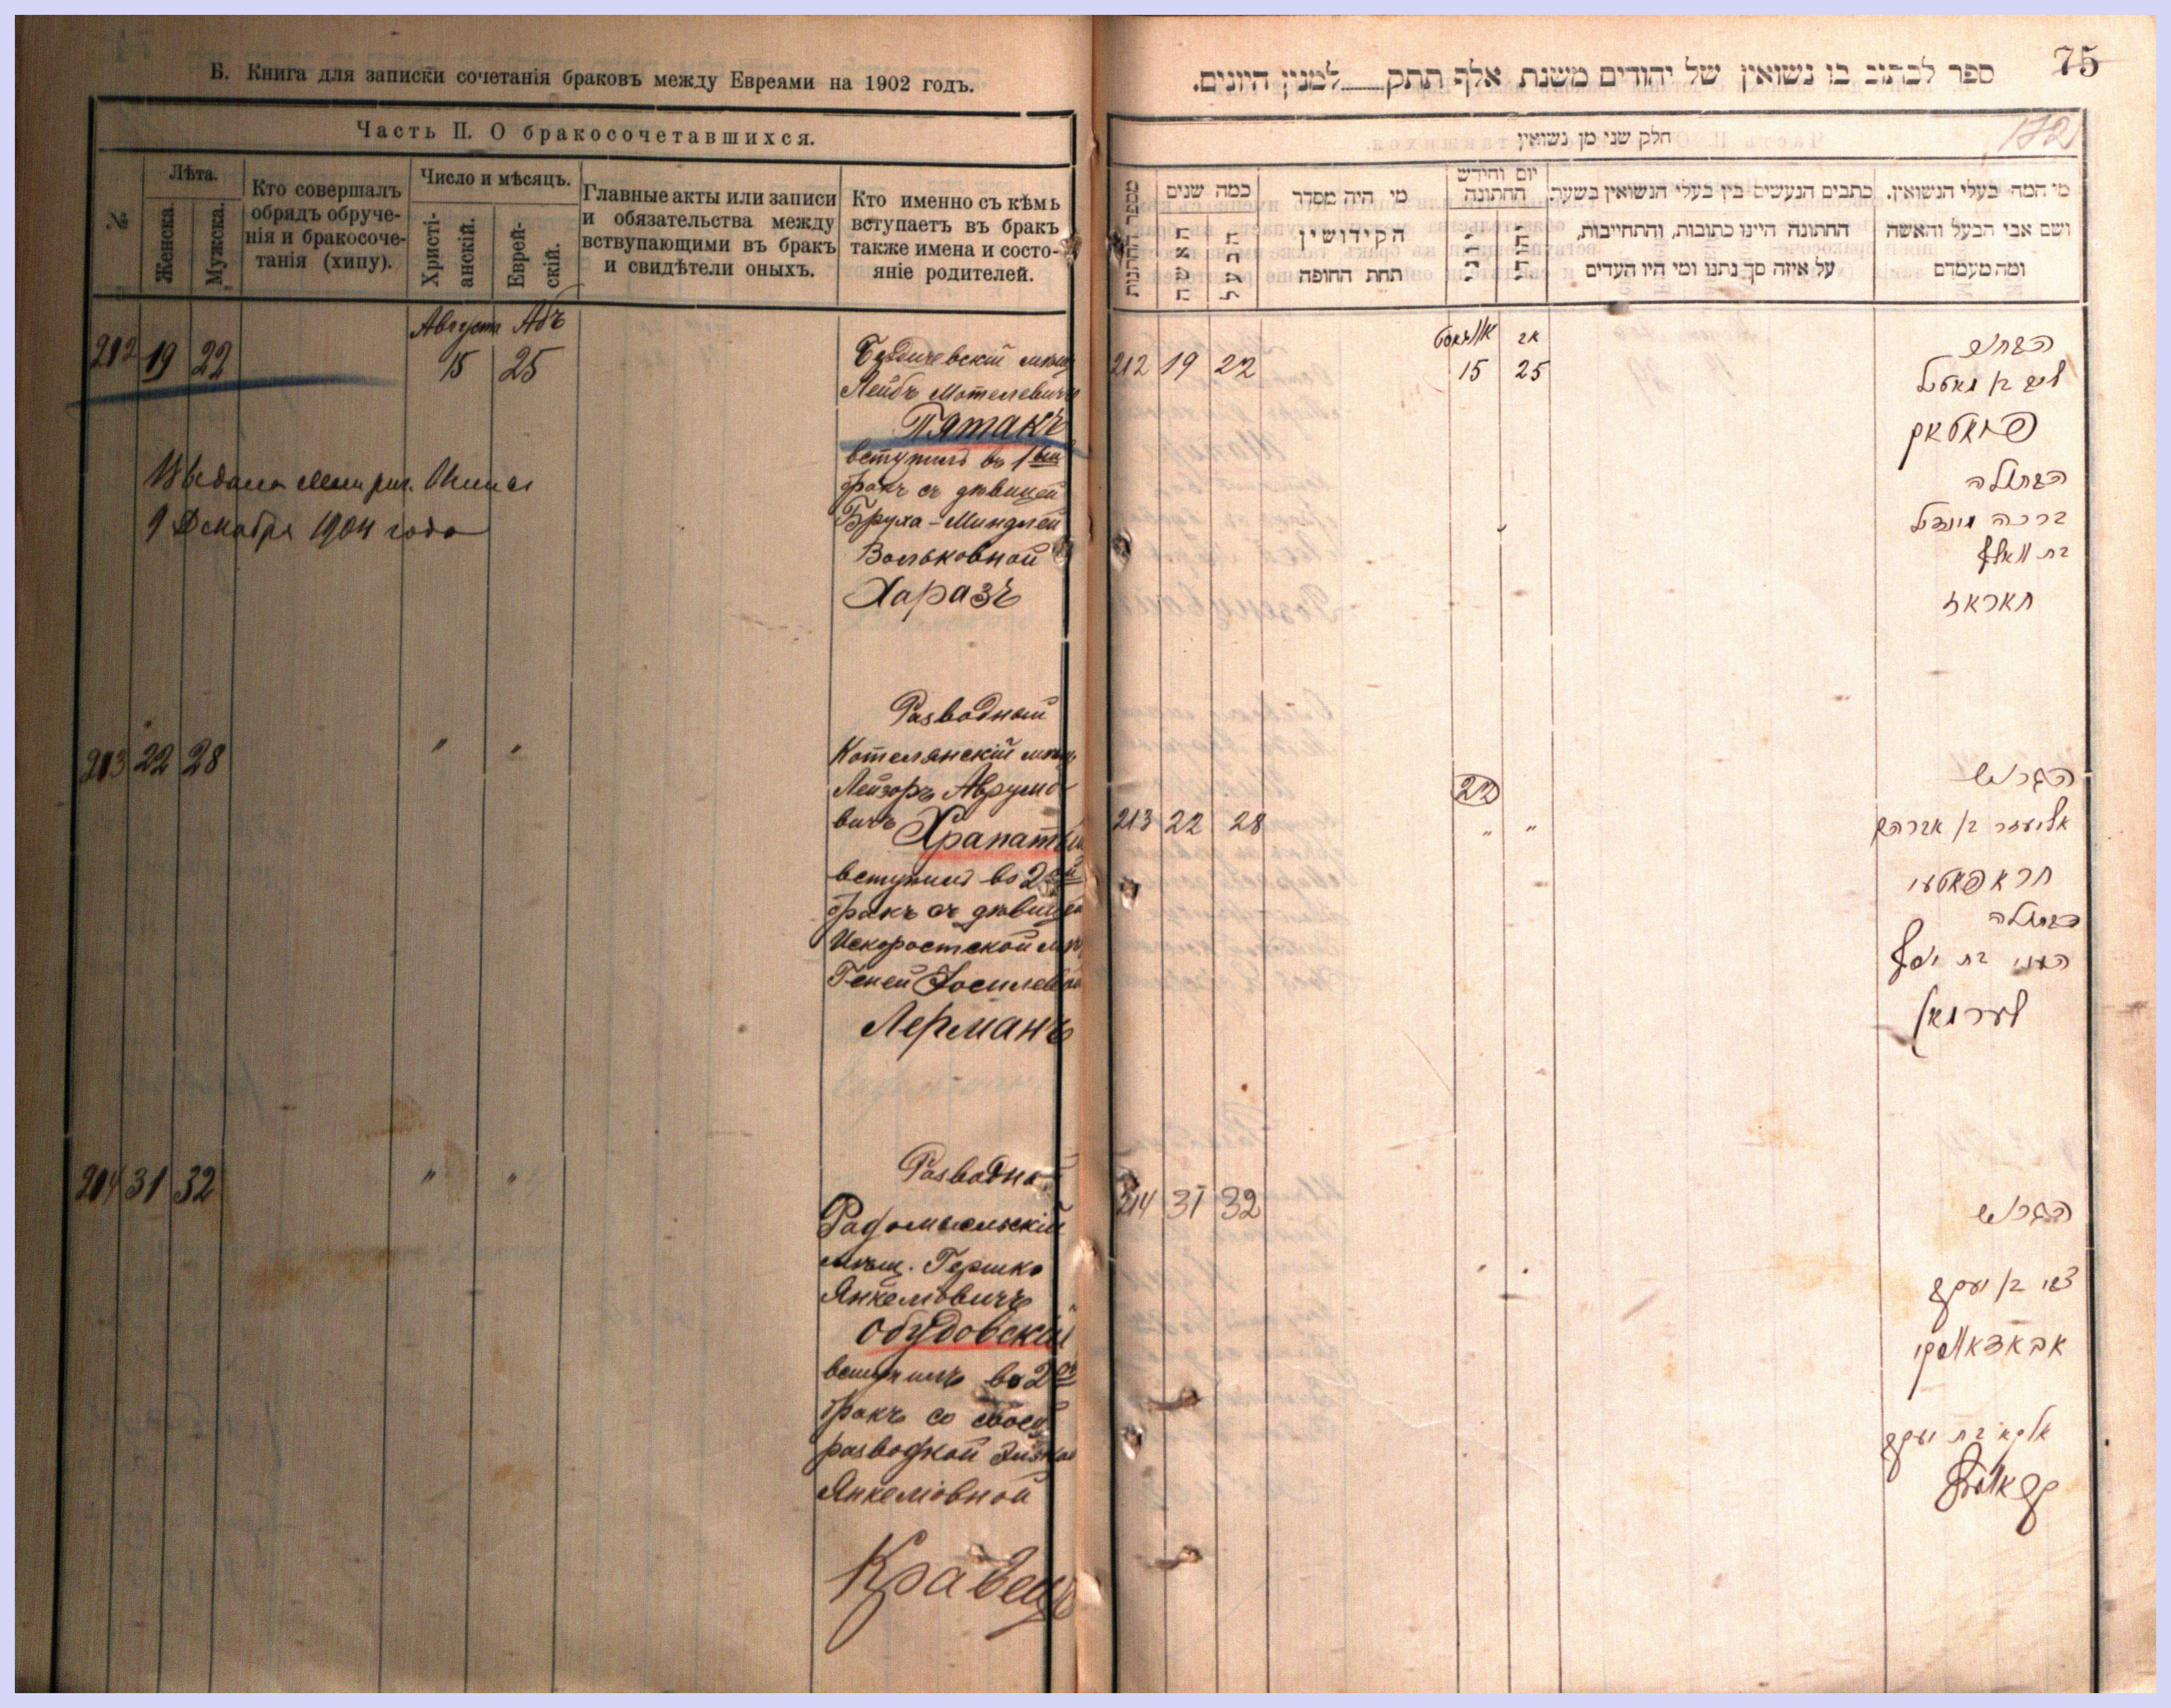 Б. Книга для записки сочетанія браковъ между Евреями на 1902 годъ.
Часть II. О бракосочетавшихся.
№
Лѣта.
Женска.
Мужска.
Кто совершалъ
обрядъ обруче-
нія и бракосоче-
танія (хипу).
Число и мѣсяцъ.
Христі-
анскій.
Еврей-
скій.
Главные акты или записи
и обязательства между
вствупающими въ бракъ
и свидѣтели оныхъ.
Кто именно съ кѣмъ
вступаетъ въ бракъ
также имена и состо-
яніе родителей.
Августа Абъ
212 19 22 15 25
Бердичевскій мѣщ
Лейбъ Мотелевичъ
Пятакъ
вступилъ въ 1ый
бракъ съ дѣвицей
Бруха-Минделей
Вольковной
Харазъ
9 Декабря 1904 года
213 22 28 " "
Разводный
Котелянскій мѣщ.
Лейзоръ Аврумо-
вичъ Храпатый
вступилъ во 2ой
бракъ съ дѣвицей
Искоростской мѣщ
Геней Іосилевой
Лерманъ
214 31 32 " "
Разводный
Радомысльскій
мѣщ. Гершко
Янкелiовичъ
Обудовскій
вступилъ во 2ой
бракъ со своей
разводкой
Янкеліовной
Кравецъ
75
ספר לכתוב בו נשואין של יהודים משנת אלף תתק למנין היונים.
172
חלק שני מן נשואין
מספר החתונות
כמה שנים
האשה
הבעל
מי היה מסדר
הקידושין
תחת החופה
יום וחידש
החתונה
יוני
יהודי
כתבים הנעשים בין בעלי הנשואין בשעה.
החתונה היינו כתובות, והתחייבות,
על איזה סך נתנו ומי היו העדים
מי המה בעלי הנשואין.
ושם אבי הבעל והאשה
ומה מעמדם
אויגוסט אב
212 19 22 15 25
הבחור
ליב בן מאטיל
פיאטאק
הבתולה
ברכה מינדיל
בת וואלף
חאראז
22
213 22 28 " "
הגרוש
אליעזר בן אברהם
חראפאטעי
הבתולה
העני בת יוסף
לערמאן
214 31 32 " "
הגרוש
צבי בן יעקב
אבאדאווסקי
בת יעקב